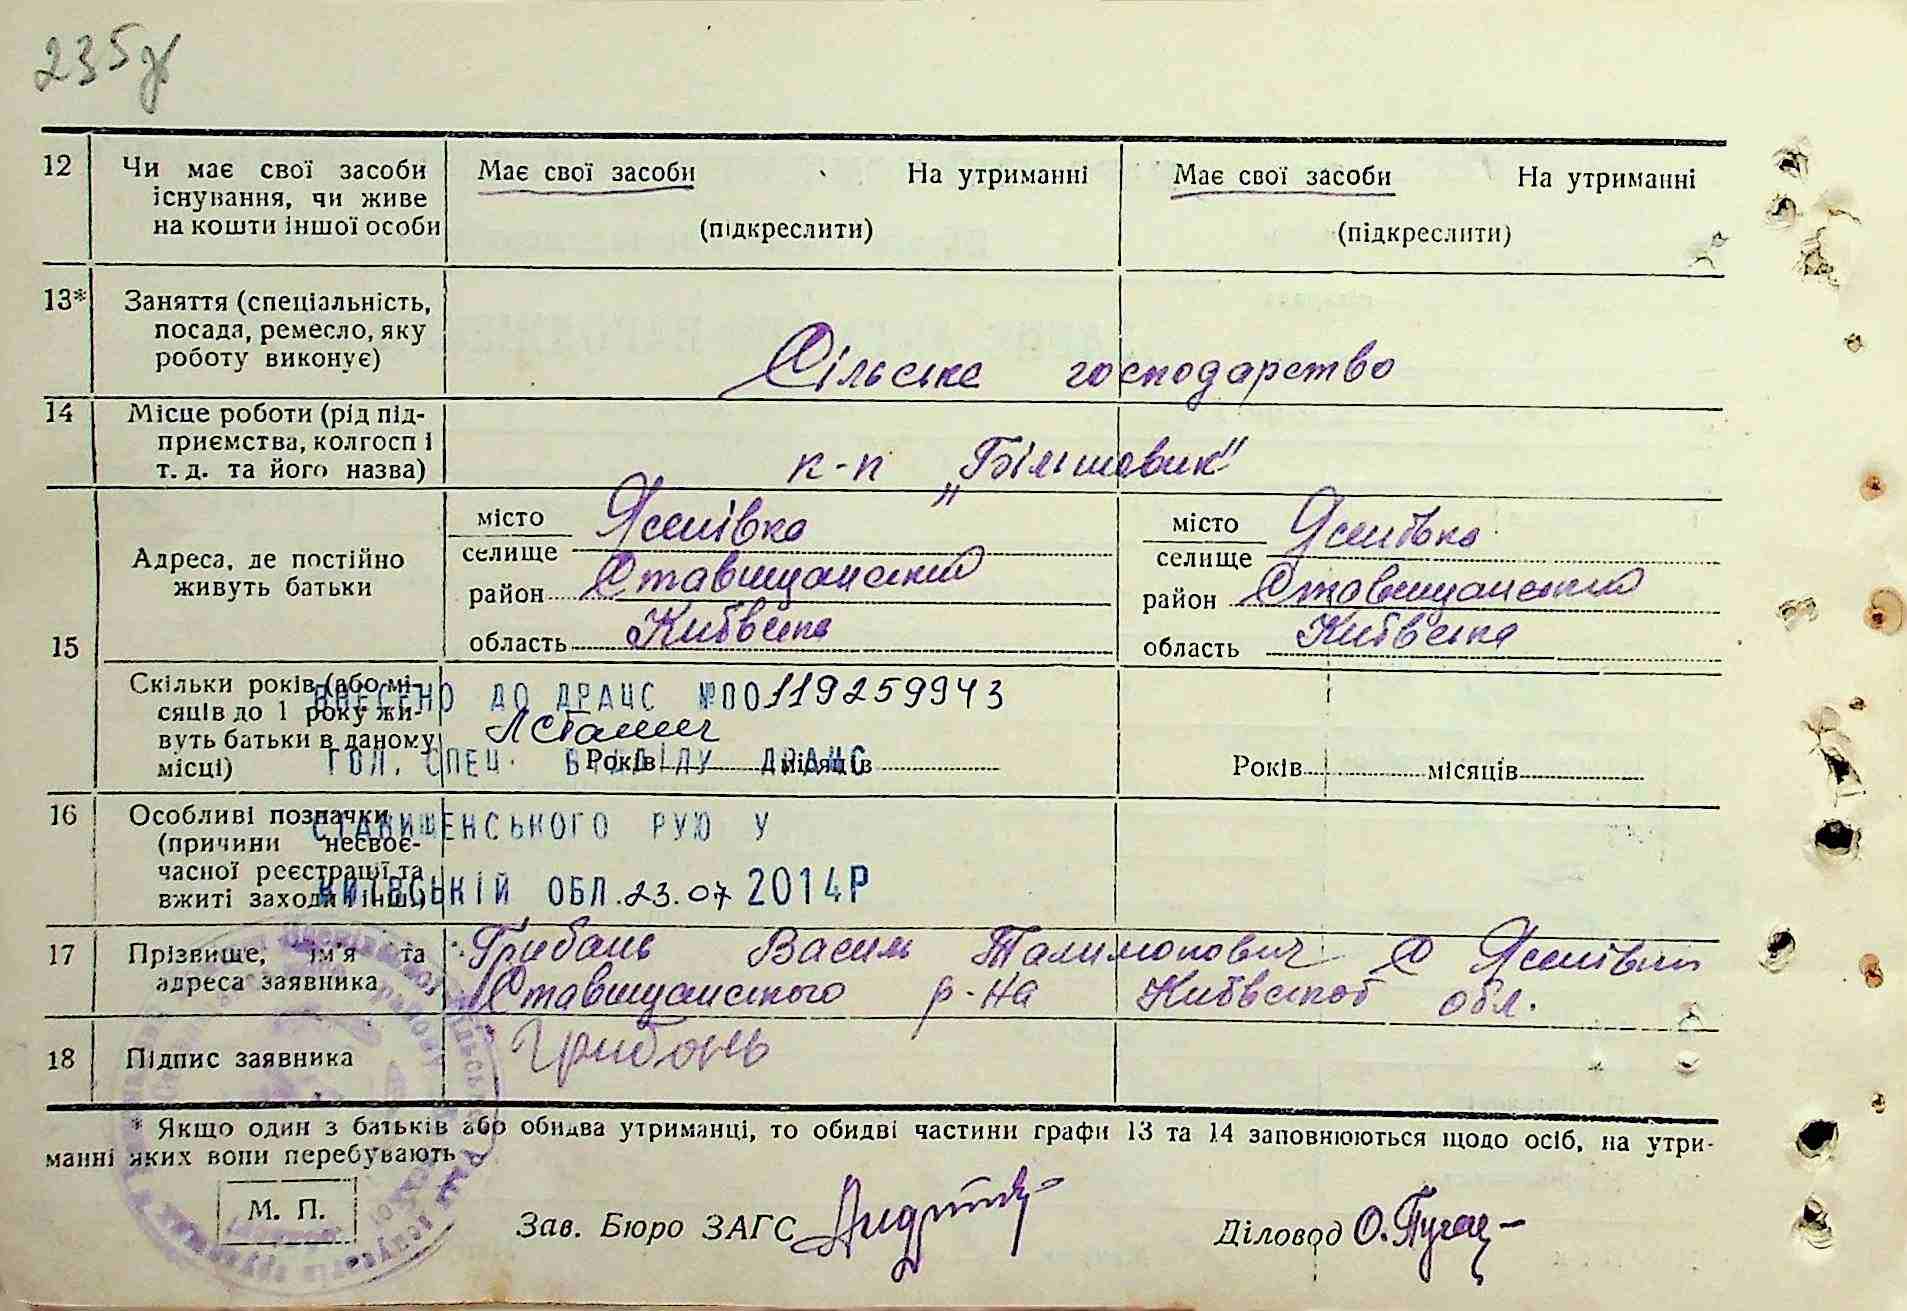 235
12 Чи має свої засоби існування, чи живе на кошти іншої особи
Має свої засоби На утриманні
(підкреслити)
Має свої засоби На утриманні
(підкреслити)
13* Заняття (спеціальність,
посада, ремесло, яку
роботу виконує)
Сільське господарство
14 Місце роботи (рід під-
приємства, колгосп і
т. д. та його назва)
к-п „Більшовик"
15
Адреса, де постійно
живуть батьки
місто
селище Ясинівка
район Ставищанский
область Київська
місто
селище Ясинівка
район Ставищанский
область Київська
Скільки років (або мі-
сяців до 1 року жи-
вуть батьки в даному
місці)
Років місяців
Років місяців
ВНЕСЕНО ДО ДРАЦС №00119259943
ГОЛ. СПЕЦ. ВІДДІЛУ ДРАЦС
СТАВИЩЕНСЬКОГО РУЮ У
КИЇВСЬКІЙ ОБЛ. 23.07 2014Р
16 Особливі позначки
(причини несвоє-
часної реєстрації та
вжиті заходи і інш.)
17 Прізвище, ім'я та
адреса заявника
Грибань Василь с Ясинівки
Ставищанского р-на Київской обл.
18 Підпис заявника
Грибань
* Якщо один з батьків або обидва утриманці, то обидві частини графи 13 та 14 заповнюються щодо осіб, на утри-
манні яких вони перебувають
М. П.
Зав. Бюро ЗАГС
Діловод О. Пугач